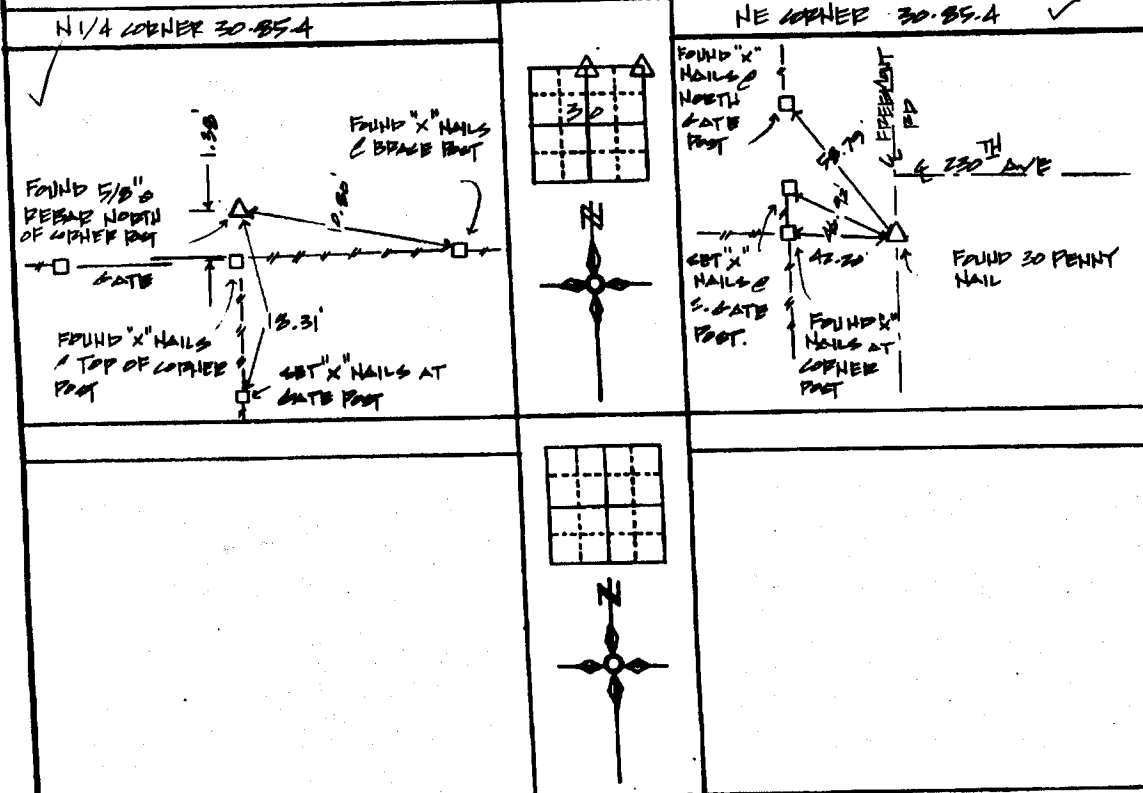 N 1/4 CORNER 30-85-4
1.38'
FOUND "X" NAILS
@ BRACE POST
FOUND 5/8" ø
REBAR NORTH
OF CORNER POST
GATE
18.31'
FOUND "X" NAILS
@ TOP OF CORNER
POST
SET "X" NAILS AT
GATE POST
30
N
NE CORNER 30-85-4
FOUND "X"
NAILS @
NORTH
GATE
POST
FREEMONT
RD
℄ 230TH AVE
58.73'
42.20'
SET "X"
NAILS @
S. GATE
POST.
FOUND "X"
NAILS AT
CORNER
POST
FOUND 30 PENNY
NAIL
N